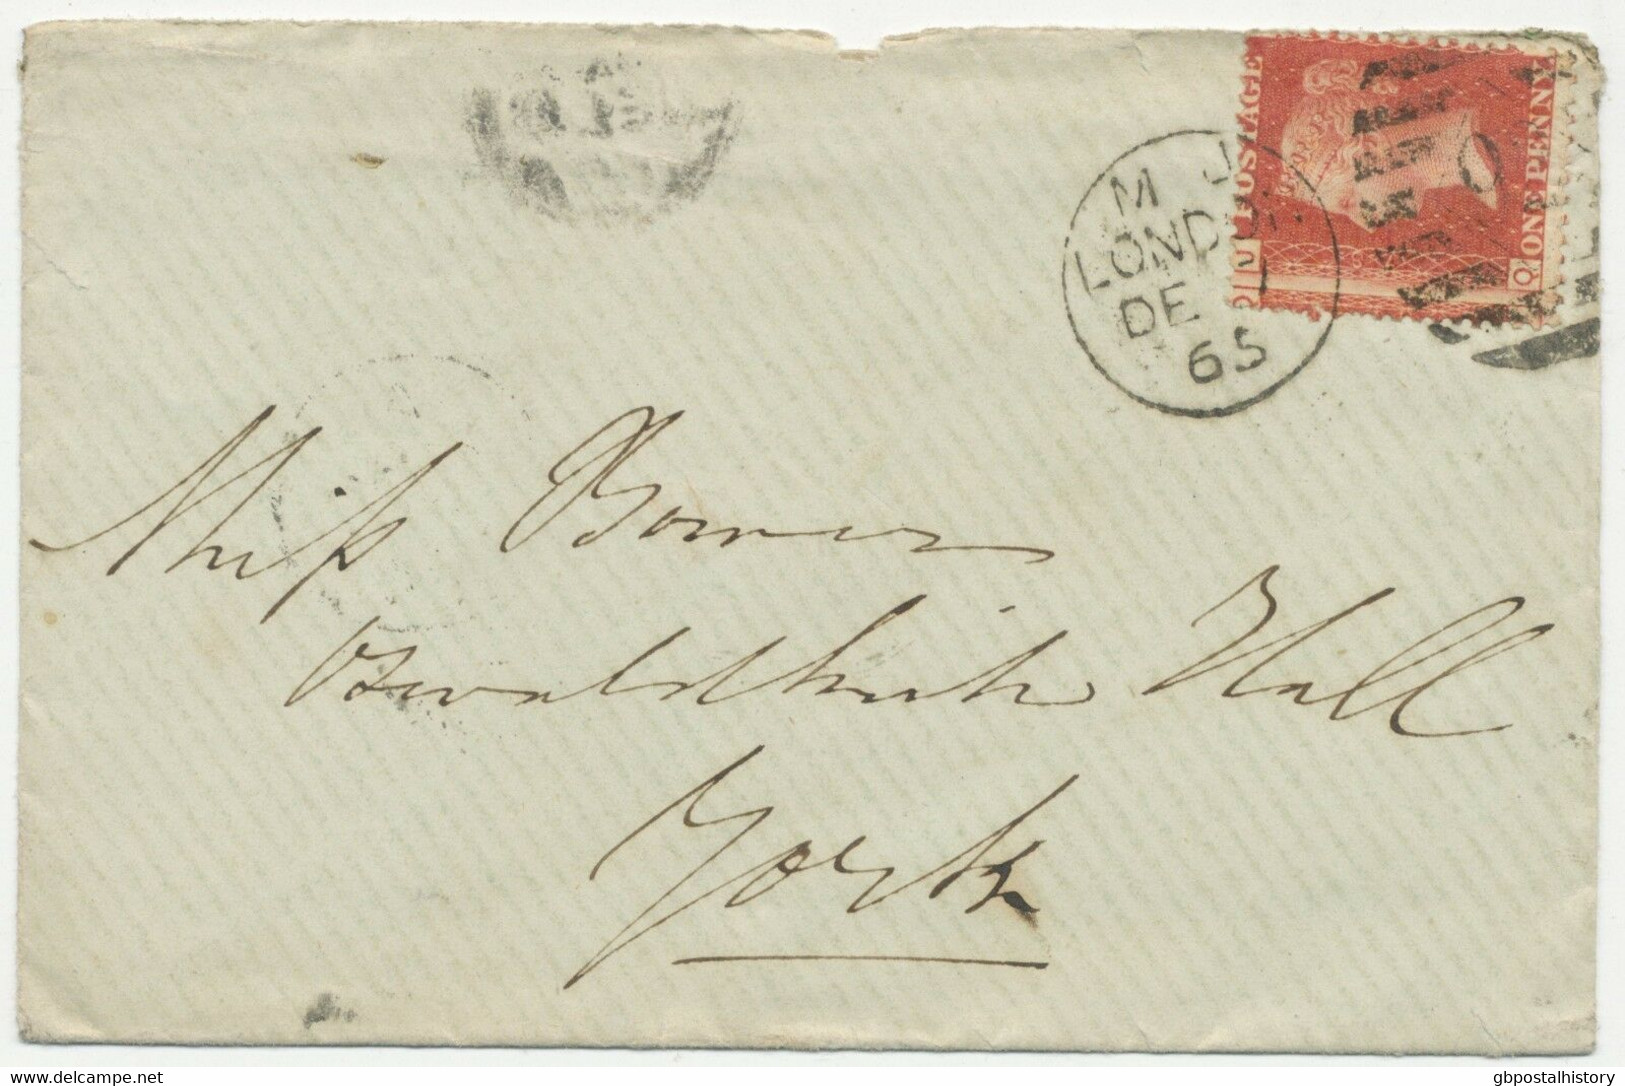 POSTAGE
ONE PENNY
O J
J O
M J
LONDON
DE
65
Miss Bower
Oswaldkirk Hall
York
www.delcampe.net
gbpostalhistory